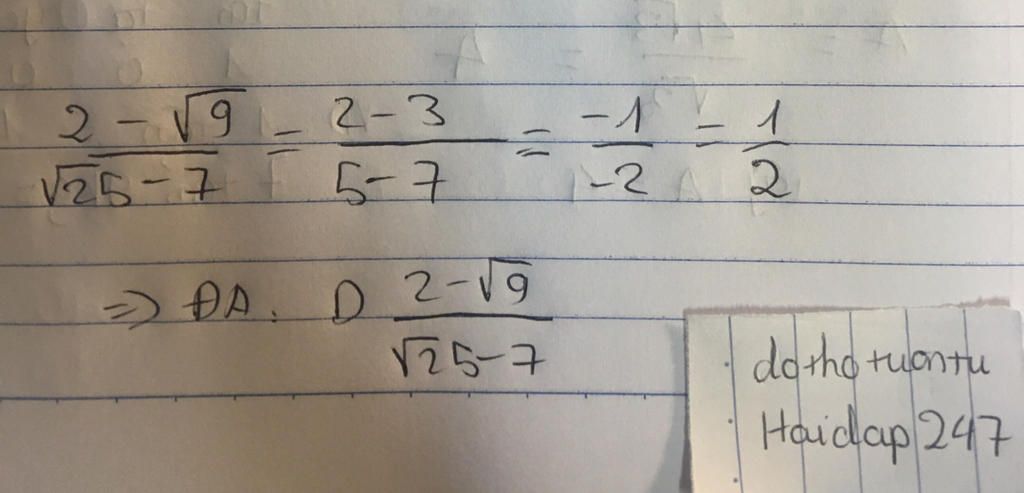 2 - √9 / √25 - 7 = 2 - 3 / 5 - 7 = -1 / -2 = 1 / 2
=> ĐA: D 2 - √9 / √25 - 7
dothotuontu
Hoidap 247